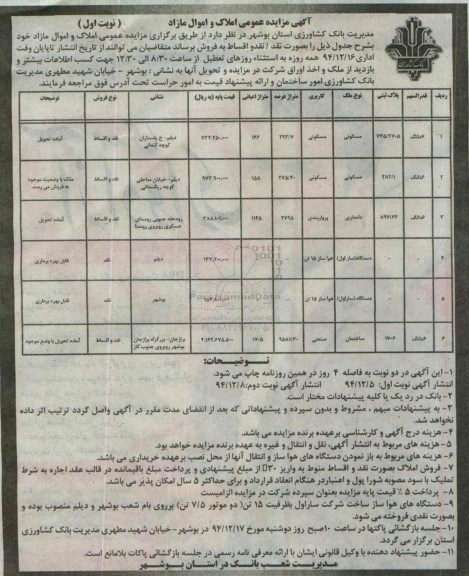 آگهی مزایده عمومی املاک و اموال مازاد ( نوبت اول )
مدیریت بانک کشاورزی استان بوشهر در نظر دارد از طریق برگزاری مزایده عمومی املاک و اموال مازاد خود
بشرح جدول ذیل را بصورت نقد / نقد و اقساط به فروش برساند متقاضیان می توانند از تاریخ انتشار تا پایان وقت
اداری ۹۴/۱۲/۱۶ همه روزه به استثناء روزهای تعطیل از ساعت ۸:۳۰ الی ۱۲:۳۰ جهت کسب اطلاعات بیشتر و
بازدید از ملک و اخذ اوراق شرکت در مزایده و تحویل آنها به نشانی : بوشهر - خیابان شهید مطهری مدیریت
بانک کشاورزی امور ساختمان و ارائه پیشنهاد قیمت به امور حراست تحت آدرس فوق مراجعه فرمایند.
ردیف قدرالسهم پلاک ثبتی نوع ملک کاربری متراژ عرصه متراژ اعیانی قیمت پایه (به ریال) نشانی نوع فروش توضیحات
۱ ششدانگ مسکونی مسکونی ۲۹۳/۷ ۱۶۶ دیلم - خ پاسداران کوچه کنعانی نقد و اقساط آماده تحویل
۲ ششدانگ ۲۸۲/۱ مسکونی مسکونی ۲۷۵/۴۰ ۱۵۸ دیلم - خیابان ساحلی نقد و اقساط ملک با وضعیت موجود به فروش می رسد.
۳ ششدانگ ۸۹۷/۶۶ دامداری پرواربندی ۲۷۹۵ ۱۱۴۵ نقد و اقساط آماده تحویل
۴ - - دستگاه(ساز اول) هوا ساز ۱۵ تن - - دیلم نقد قابل بهره برداری
۵ - - دستگاه (ساراول) هوا ساز ۱۵ تن - - بوشهر نقد قابل بهره برداری
۶ ششدانگ ۱۷۰۶ ساختمان صنعتی ۱۷۰۵ برازجان - بزرگراه برازجان بوشهر روبروی جنوب گاز نقد و اقساط آماده تحویل با وضع موجود
توضیحات:
۱- این آگهی در دو نوبت به فاصله ۴ روز در همین روزنامه چاپ می شود.
انتشار آگهی نوبت اول: ۹۴/۱۲/۵ انتشار آگهی نوبت دوم: ۹۴/۱۲/۸
۲- بانک در رد یک یا کلیه پیشنهادات مختار است.
۳- به پیشنهادات مبهم ، مشروط و بدون سپرده و پیشنهاداتی که بعد از انقضای مدت مقرر در آگهی واصل گردد ترتیب اثر داده
نخواهد شد.
۴- هزینه درج آگهی و کارشناسی برعهده برنده مزایده می باشد.
۵- هزینه های مربوط به انتشار آگهی، نقل و انتقال و غیره به عهده برنده مزایده خواهد بود.
۶- هزینه های مربوط به باز نمودن دستگاه های هوا ساز و انتقال آنها از محل نصب برعهده خریداری می باشد.
۷- فروش املاک بصورت نقد و اقساط منوط به واریز از مبلغ پیشنهادی و پرداخت مبلغ باقیمانده در قالب عقد اجاره به شرط
تملیک با سود مصوبه شورا پول و اعتبار در هنگام انعقاد قرارداد و برای حداکثر ۵ سال امکان پذیر می باشد.
۸- پرداخت ۵ ٪ قیمت پایه مزایده بعنوان سپرده شرکت در مزایده الزامیست
۹- دستگاه های هوا ساز ساخت شرکت ساراول بظرفیت ۱۵ تن( دو موتور ۷/۵ تن) برروی بام شعب بوشهر و دیلم منصوب بوده و
بصورت نقدی فروخته می شود.
۱۰- جلسه بازگشائی پاکتها در ساعت ۱۰صبح روز دوشنبه مورخ ۹۴/۱۲/۱۷ در بوشهر - خیابان شهید مطهری مدیریت بانک کشاورزی
استان برگزار می گردد.
۱۱- حضور پیشنهاد دهنده یا وکیل قانونی ایشان با ارائه معرفی نامه رسمی در جلسه بازگشائی پاکات بلامانع است.
مدیریت شعب بانک در استان بوشهر